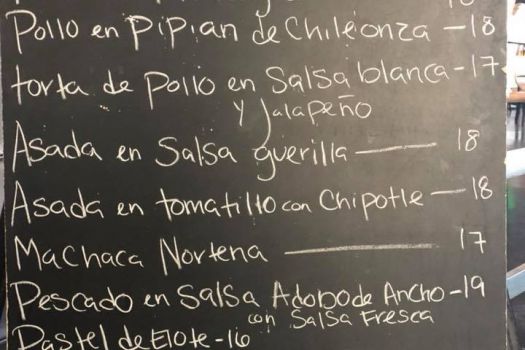 Pollo en Pipian de Chileonza - 18
torta de Pollo en Salsa blanca - 17
y Jalapeño
Asada en Salsa guerilla — 18
Asada en tomatillo con Chipotle — 18
Machaca Nortena — 17
Pescado en Salsa Adobo de Ancho - 19
con Salsa Fresca
Pastel de Elote - 16